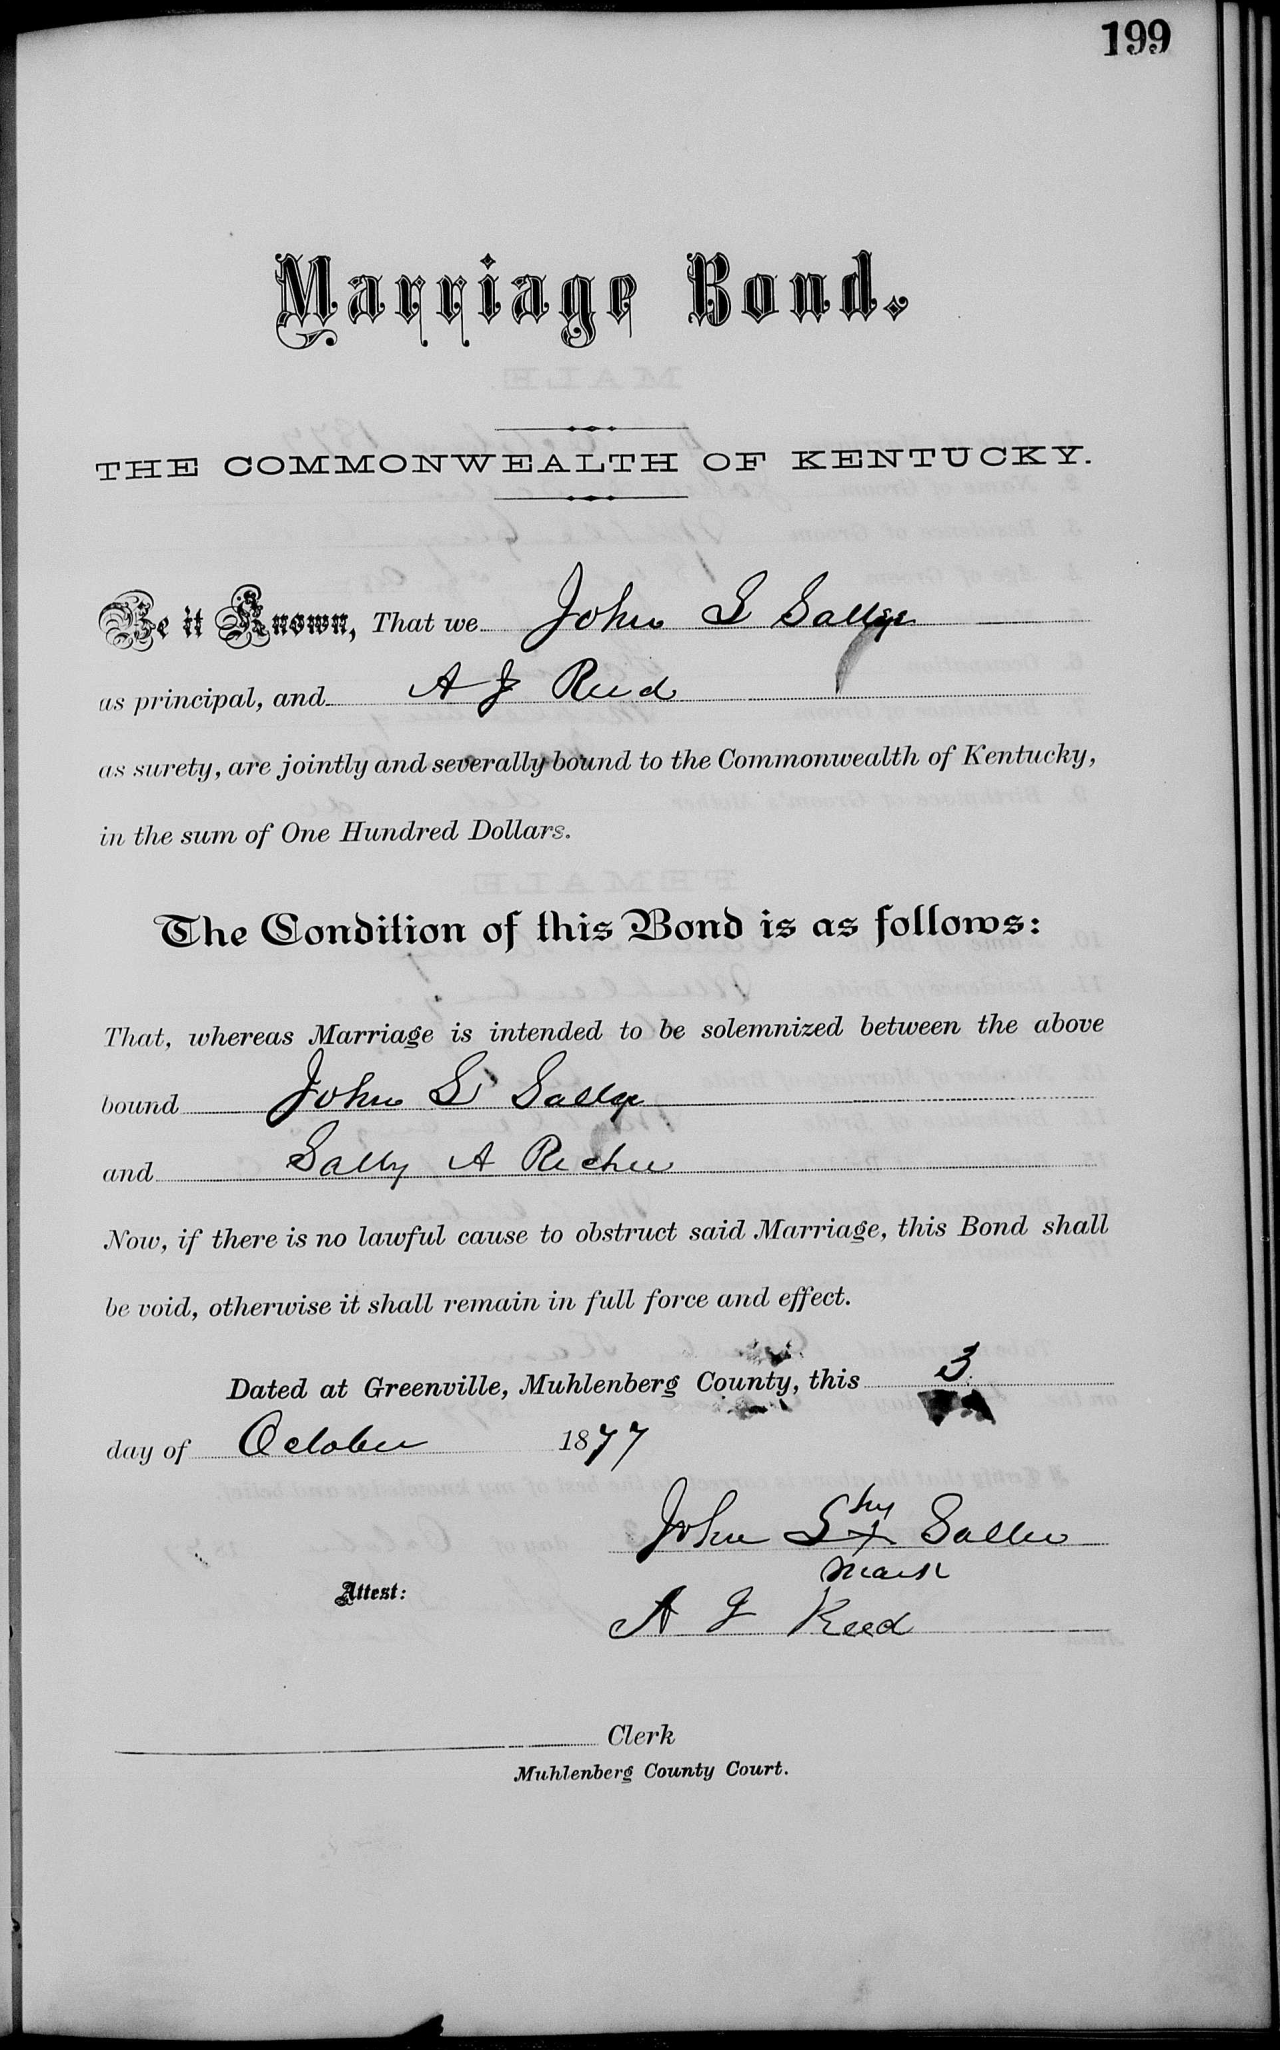 199
Marriage Bond.
THE COMMONWEALTH OF KENTUCKY.
Be it Known, That we John S
as principal, and A J Reed
as surety, are jointly and severally bound to the Commonwealth of Kentucky,
in the sum of One Hundred Dollars.
The Condition of this Bond is as follows:
That, whereas Marriage is intended to be solemnized between the above
bound John S
and Sally A
Now, if there is no lawful cause to obstruct said Marriage, this Bond shall
be void, otherwise it shall remain in full force and effect.
Dated at Greenville, Muhlenberg County, this 3
day of October 1877
his
John S X
mark
Attest:
A J Reed
Clerk
Muhlenberg County Court.